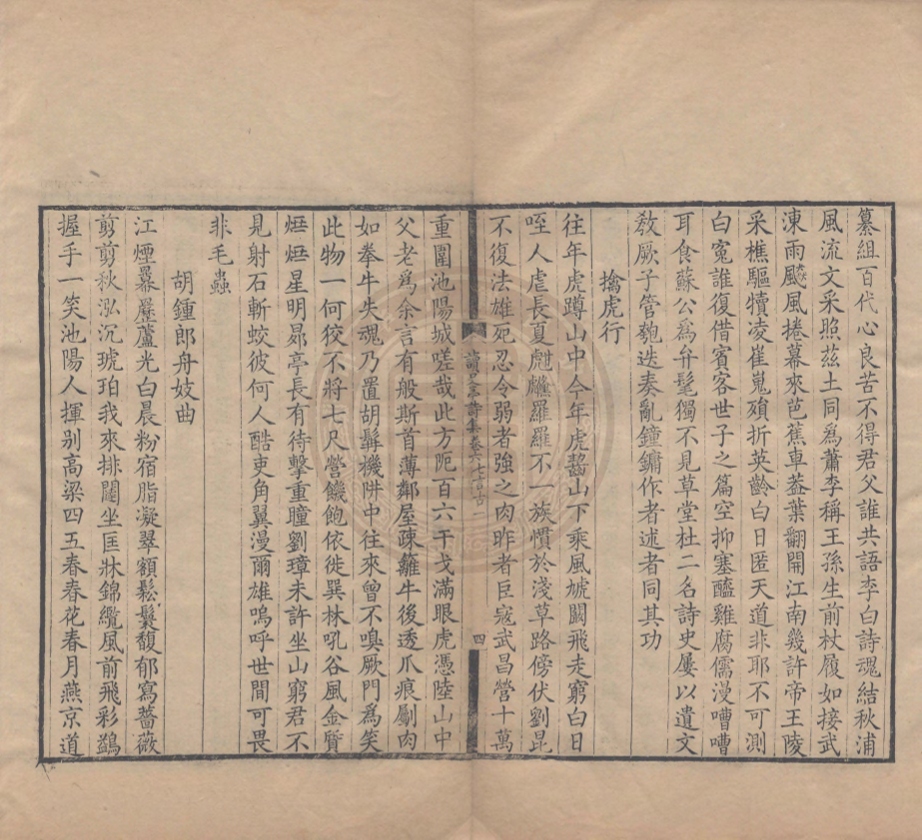 纂組百代心良苦不得君父誰共語李白詩魂結秋浦
風流文采照茲土同爲蕭李稱王孫生前杖履如接武
涷雨飈風捲幕來芭蕉車葢葉翻開江南幾許帝王陵
采樵驅犢凌崔嵬殰折英齡白日匿天道非耶不可測
白寃誰復借賓客世子之篇空抑塞醯雞腐儒漫嘈嘈
耳食蘇公爲弁髦獨不見草堂杜二名詩史屢以遺文
敎厥子管匏迭奏亂鐘鏞作者述者同其功
擒虎行
往年虎蹲山中今年虎齧山下乘風虓闞飛走窮白日
咥人虐長夏甝麤羅羅不一族慣於淺草路傍伏劉昆
不復法雄死忍令弱者強之肉昨者巨寇武昌營十萬
讀史亭詩集卷六七言古
四
重圍池陽城嗟哉此方阨百六干戈滿眼虎憑陸山中
父老爲余言有般斯首薄鄰屋疎籬牛後透爪痕劚肉
如拳牛失魂乃置胡髯機阱中往來曾不嗅厥門爲笑
此物一何狡不將七尺營饑飽依徙巽林吼谷風金質
烻烻星明昴亭長有待擊重瞳劉璋未許坐山窮君不
見射石斬蛟彼何人酷吏角翼漫爾雄嗚呼世間可畏
非毛蟲
胡鍾郎舟妓曲
江煙羃䍥蘆光白晨粉宿脂凝翠額鬆鬟馥郁寫薔薇
剪剪秋泓沉琥珀我來排闥坐匡牀錦纜風前飛彩鷁
握手一笑池陽人揮别高梁四五春春花春月燕京道